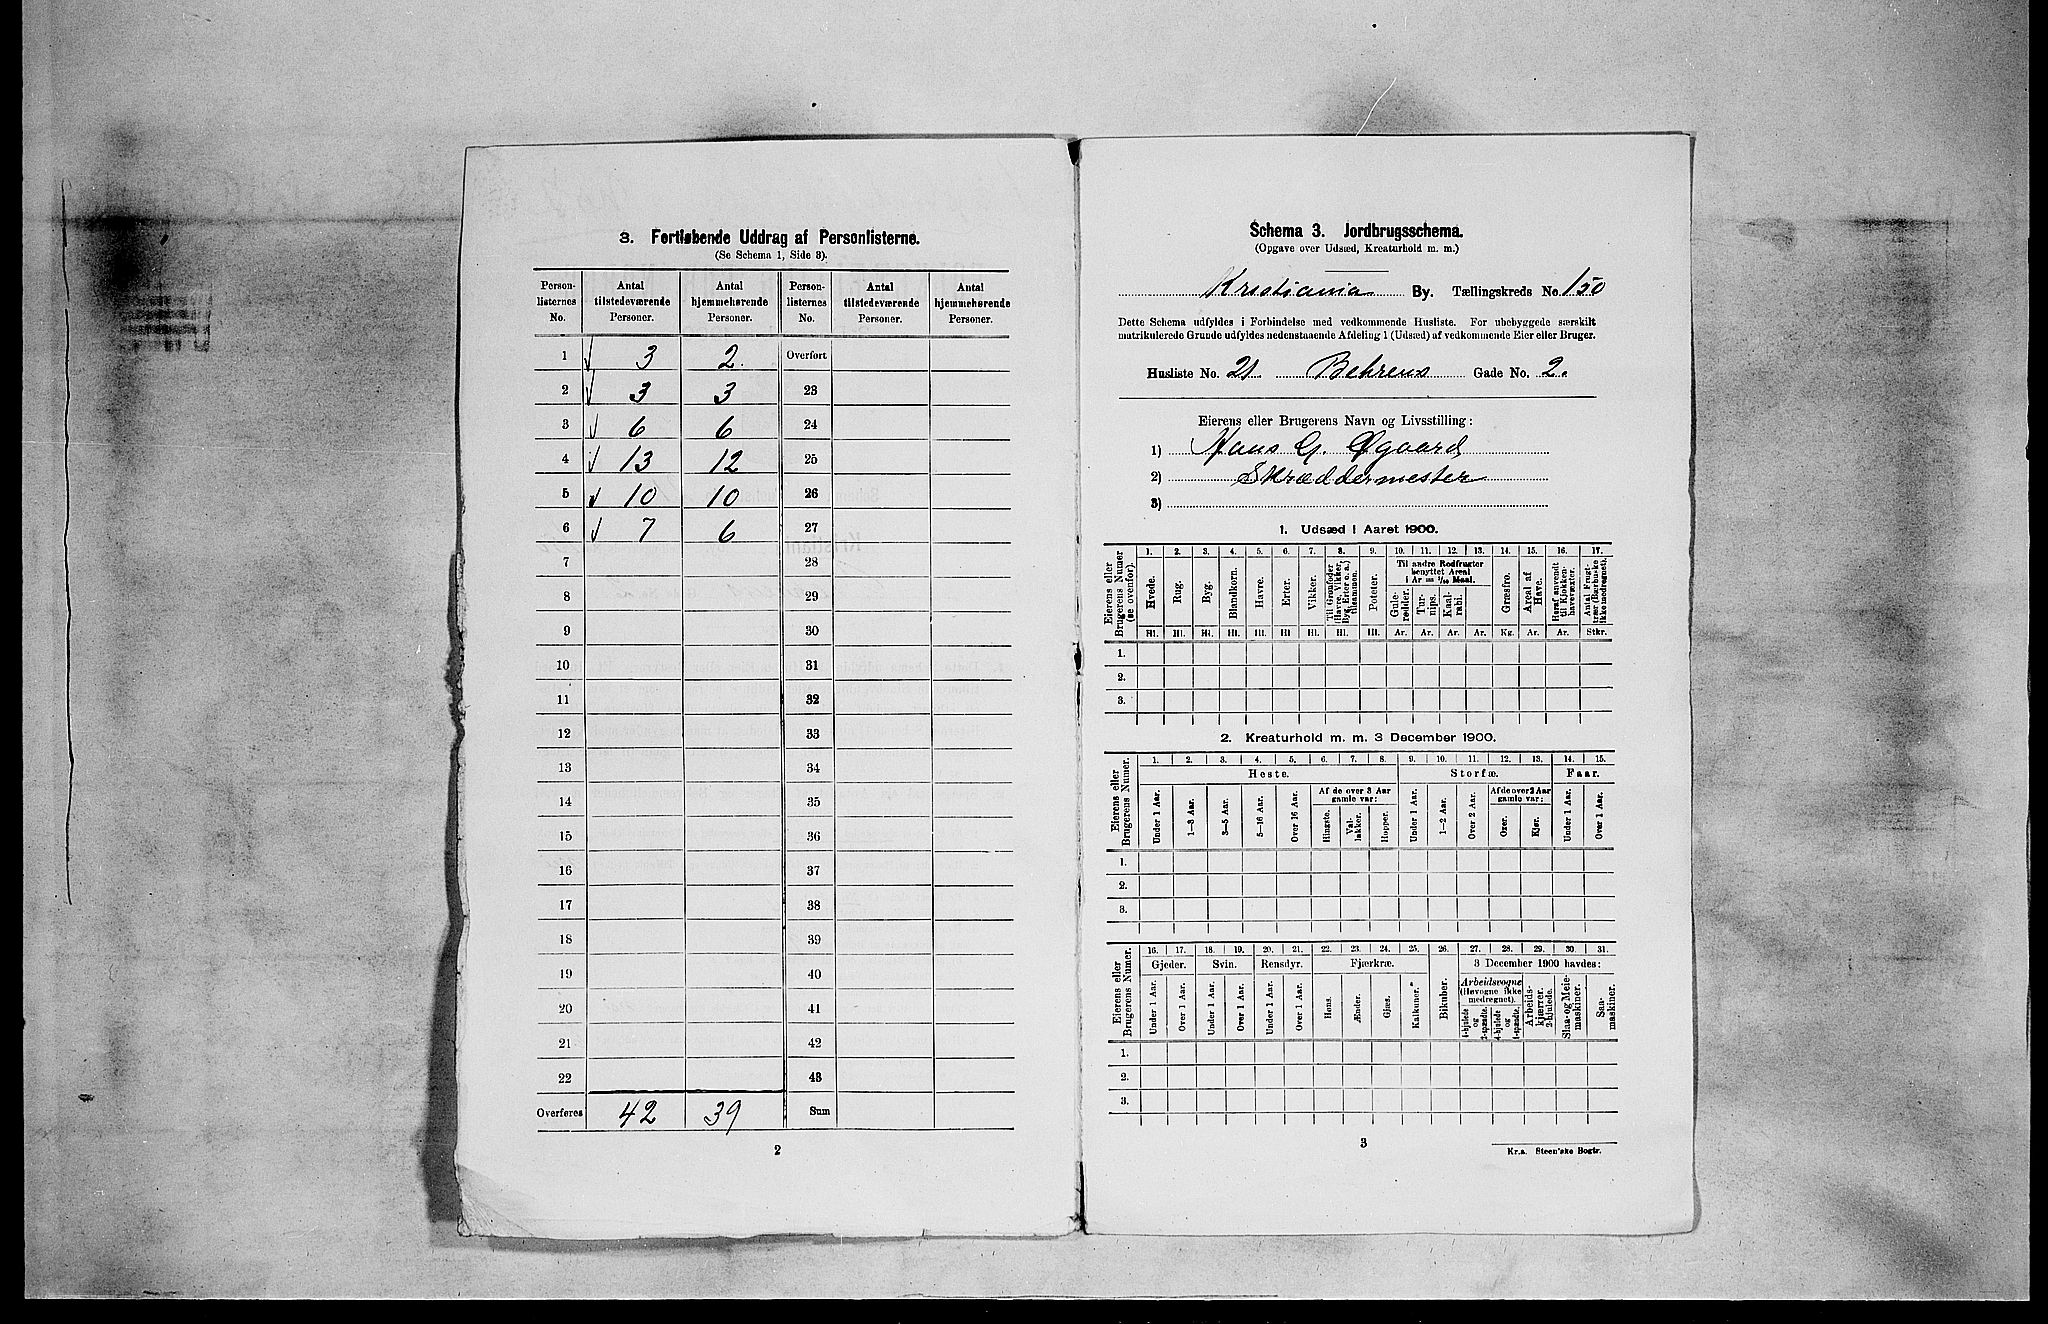 3. Fortløbende Uddrag af Personlisterne.
(Se Schema 1, Side 3).
Person-listernes No. Antal tilstedeværende Personer. Antal hjemmehørende Personer. Person-listernes No. Antal tilstedeværende Personer. Antal hjemmehørende Personer.
1 √ 3 2. Overført
2 √ 3 3 23
3 √ 6 6 24
4 √ 13 12 25
5 √ 10 10 26
6 √ 7 6 27
7 28
8 29
9 30
10 31
11 32
12 33
13 34
14 35
15 36
16 37
17 38
18 39
19 40
20 41
21 42
22 43
Overføres 42 39 Sum
2
Schema 3. Jordbrugsschema.
(Opgave over Udsæd, Kreaturhold m. m.)
Kristiania By. Tællingskreds No. 150
Dette Schema udfyldes i Forbindelse med vedkommende Husliste. For ubebyggede særskilt
matrikulerede Grunde udfyldes nedenstaaende Afdeling 1 (Udsæd) af vedkommende Eier eller Bruger.
Husliste No. 21. Behrens Gade No. 2.
Eierens eller Brugerens Navn og Livsstilling:
1) Hans G. Øgaard
2) Skræddermester
3)
1. Udsæd i Aaret 1900.
Eierens eller Brugerens Numer (se ovenfor).
1. 2. 3. 4. 5. 6. 7. 8. 9. 10. 11. 12. 13. 14. 15. 16. 17.
Til andre Rodfrugter benyttet Areal i Ar = 1/10 Maal.
Hvede. Rug. Byg. Blandkorn. Havre. Erter. Vikker. Til Grønfoder (Havre, Vikker, Byg, Erter o. a.) tilsammen. Poteter. Gule-rødder. Tur-nips. Kaal-rabi. Græsfrø. Areal af Have. Heraf anvendt til Kjøkken-havevæxter. Antal Frugt-trær (Bærbuske ikke medregnet).
Hl. Hl. Hl. Hl. Hl. Hl Hl. Hl. Hl. Ar. Ar. Ar. Ar. Kg. Ar. Ar. Stkr.
1.
2.
3.
2. Kreaturhold m. m. 3 December 1900.
Eierens eller Brugerens Numer.
1. 2. 3. 4. 5. 6. 7. 8. 9. 10. 11. 12. 13. 14. 15.
Heste. Storfæ. Faar.
Af de over 3 Aar gamle var: Af de over 2 Aar gamle var:
Under 1 Aar. 1—3 Aar. 3—5 Aar. 5—16 Aar. Over 16 Aar. Hingste. Val-lakker. Hopper. Under 1 Aar. 1—2 Aar. Over 2 Aar. Oxer. Kjør. Under 1 Aar. Over 1 Aar.
1.
2.
3.
Eierens eller Brugerens Numer.
16. 17. 18. 19. 20. 21. 22. 23. 24. 25. 26. 27. 28. 29. 30. 31.
Gjeder. Svin. Rensdyr. Fjærkræ. 3 December 1900 havdes:
Arbeidsvogne (Høvogne ikke medregnet).
Under 1 Aar. Over 1 Aar. Under 1 Aar. Over 1 Aar. Under 1 Aar. Over 1 Aar. Høns. Ænder. Gjæs. Kalkuner. Bikuber. 4-hjulede og 2-spændte. 4-hjulede og 1-spændte. Arbeids-kjærrer. 2-hjulede. Slaa- og Meie-maskiner. Saa-maskiner.
1.
2.
3.
3
Kr.a. Steen'ske Bogtr.